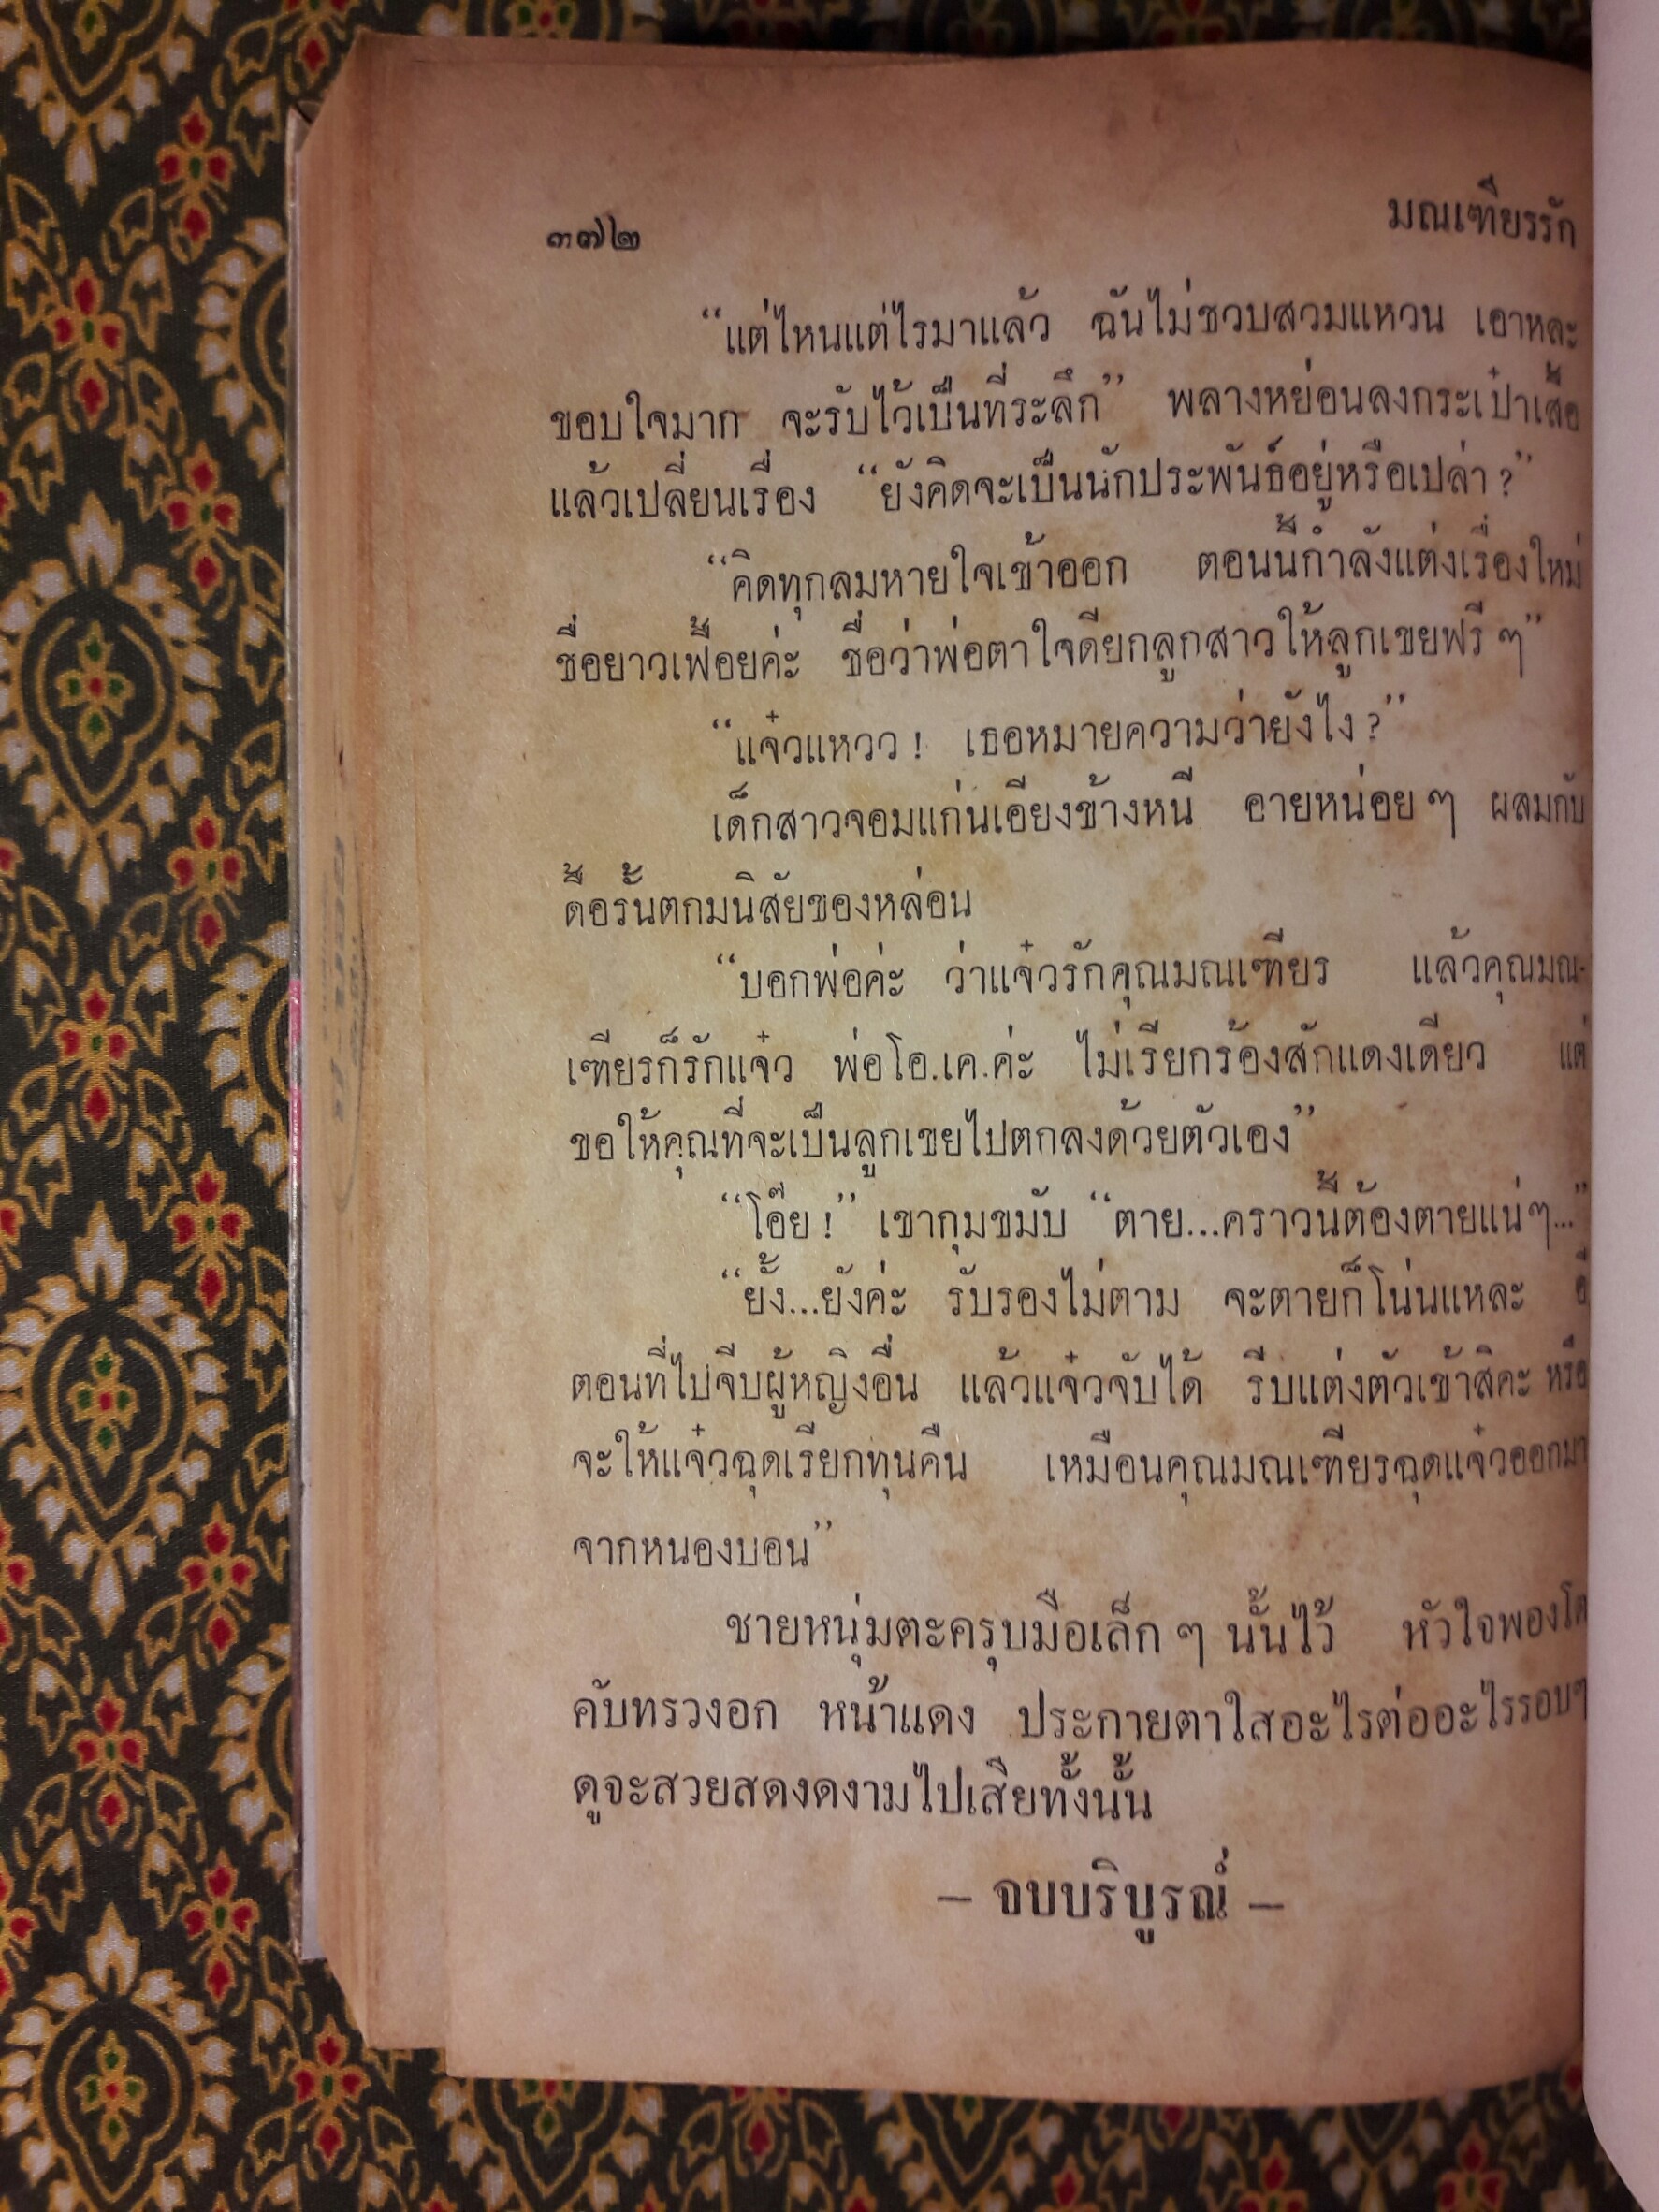 ๓๗๒
มณเฑียรรัก
“แต่ไหนแต่ไรมาแล้ว ฉันไม่ชวบสวมแหวน เอาหละ
ขอบใจมาก จะรับไว้เป็นที่ระลึก” พลางหย่อนลงกระเป๋าเสื้อ
แล้วเปลี่ยนเรื่อง “ยังคิดจะเป็นนักประพันธ์อยู่หรือเปล่า ?”
“คิดทุกลมหายใจเข้าออก ตอนนี้กำลังแต่งเรื่องใหม่
ชื่อยาวเฟื้อยค่ะ ชื่อว่าพ่อตาใจดียกลูกสาวให้ลูกเขยฟรี ๆ”
“แจ๋วแหวว ! เธอหมายความว่ายังไง ?”
เด็กสาวจอมแก่นเอียงข้างหนี อายหน่อย ๆ ผสมกับ
ดื้อรั้นตกมนิสัยของหล่อน
“บอกพ่อค่ะ ว่าแจ๋วรักคุณมณเฑียร แล้วคุณมณ-
เฑียรก็รักแจ๋ว พ่อโอ.เค.ค่ะ ไม่เรียกร้องสักแดงเดียว แค่
ขอให้คุณที่จะเป็นลูกเขยไปตกลงด้วยตัวเอง”
“โอ๊ย !” เขากุมขมับ “ตาย...คราวนี้ต้องตายแน่ ๆ...”
“ยั้ง...ยังค่ะ รับรองไม่ตาม จะตายก็โน่นแหละ
ตอนที่ไปจีบผู้หญิงอื่น แล้วแจ๋วจับได้ รีบแต่งตัวเข้าสิคะ หรือ
จะให้แจ๋วฉุดเรียกทุนคืน เหมือนคุณมณเฑียรฉุดแจ๋วออกมา
จากหนองบอน”
ชายหนุ่มตะครุบมือเล็ก ๆ นั้นไว้ หัวใจพองโต
คับทรวงอก หน้าแดง ประกายตาใสอะไรต่ออะไรรอบๆ
ดูจะสวยสดงดงามไปเสียทั้งนั้น
– จบบริบูรณ์ –